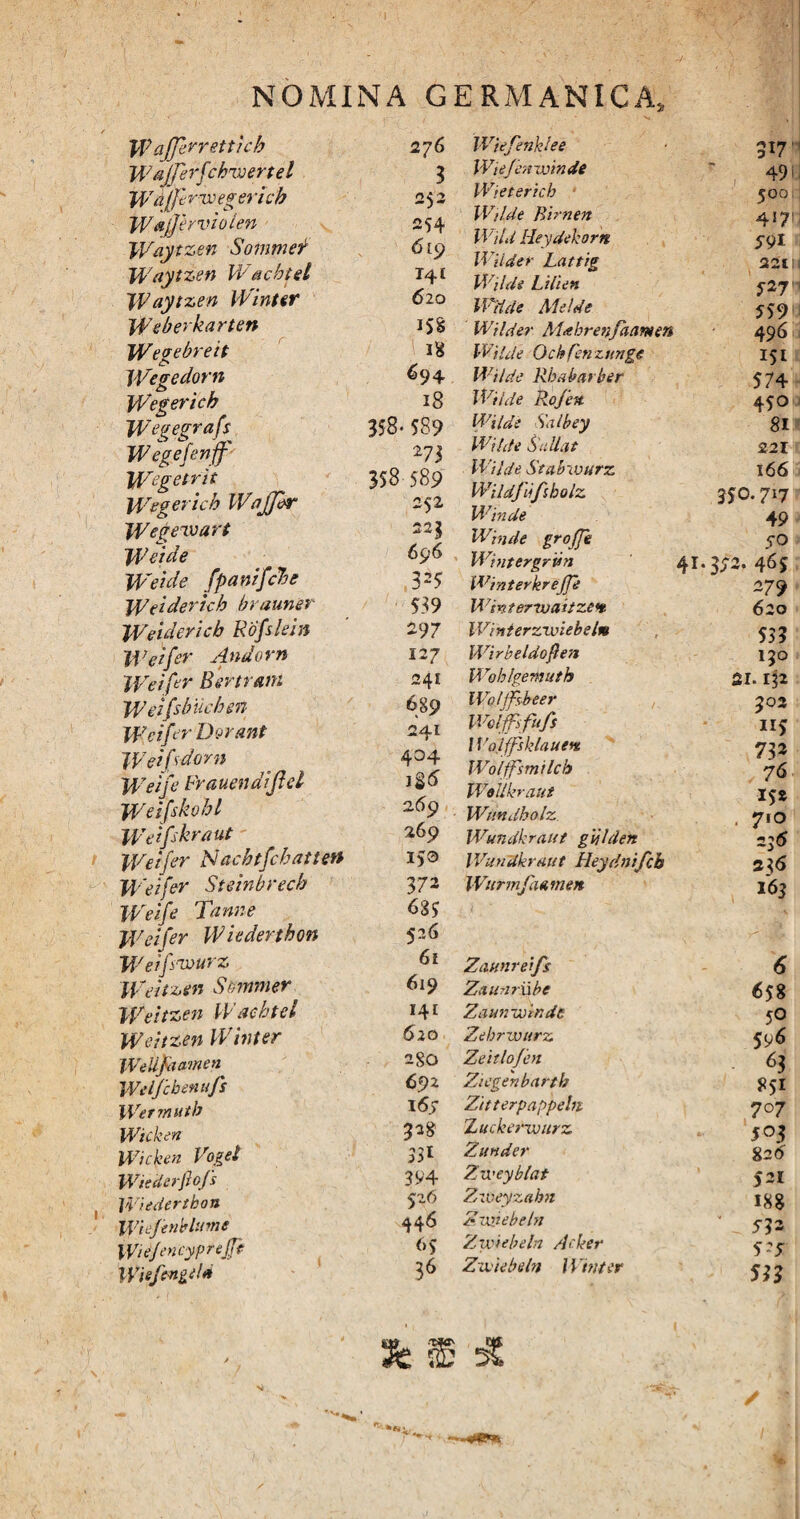 NOMINA GERMANICA,
Wasserrettich 276
Wasserschwertel 3
Wasserwegerich 252
Wasserviolen 254
Waytzen Sommer 619
Waytzen Wachtel 141
Waytzen Winter 620
Weberkarten 158
Wegebreit 18
Wegedorn 694
Wegerich 18
Wegegrass 358. 589
Wegesenff 273
Wegetrit 358 589
Wegerich Wasser 252
Wegewart 223
Weide 696
Weide spanische 325
Weiderich brauner 539
Weiderich Röslein 297
Weiser Andorn 127
Weiser Bertram 241
Weisbüchen 689
Weiser Dorant 241
Weisdorn 404
Weise Frauendistel 186
Weiskohl 269
Weiskraut 269
Weiser Nachtschatten 150
Weiser Steinbrech 372
Weise Tanne 685
Weiser Wiederthon 526
Weiswurz 61
Weitzen Sommer 619
Weitzen Wachtel 141
Weitzen Winter 620
Wellsaamen 280
Welschenuss 692
Wermuth 165
Wicken 328
Wicken Vogel 331
Wiederstoss 394
Wiederthon 526
Wiesenblume 446
Wiesencypresse 65
Wiesengeld 36
Wiesenklee 317
Wiesenwinde 49
Wieterich 500
Wilde Birnen 417
Wild Heydekorn 591
Wilder Lattig 221
Wilde Lilien 527
Wilde Melde 559
Wilder Mahrensaamen 496
Wilde Ochsenzunge 151
Wilde Rhabarber 574
Wilde Rosen 450
Wilde Salbey 81
Wilde Sallat 221
Wilde Stabwurz 166
Wildsüssholz 350. 717
Winde 49
Winde grosse 50
Wintergrün 41. 352. 465
Winterkresse 279
Winterwaitzen 620
Winterzwiebeln 533
Wirbeldosten 130
Wohlgemuth 21. 132
Wolffsbeer 302
Wolffsfuss 115
Wolffsklauen 732
Wolffsmilch 76
Wollkraut 152
Wundholz 710
Wundkraut gülden 236
Wundkraut Heydnisch 236
Wurmsaamen 163
Zaunreiss 6
Zaunrübe 658
Zaunwinde 50
Zehrwurz 596
Zeitlosen 63
Ziegenbarth 851
Zitterpappeln 707
Zuckerwurz 503
Zunder 826
Zweyblat 521
Zweyzahn 188
Zwiebeln 532
Zwiebeln Acker 525
Zwiebeln Winter 533